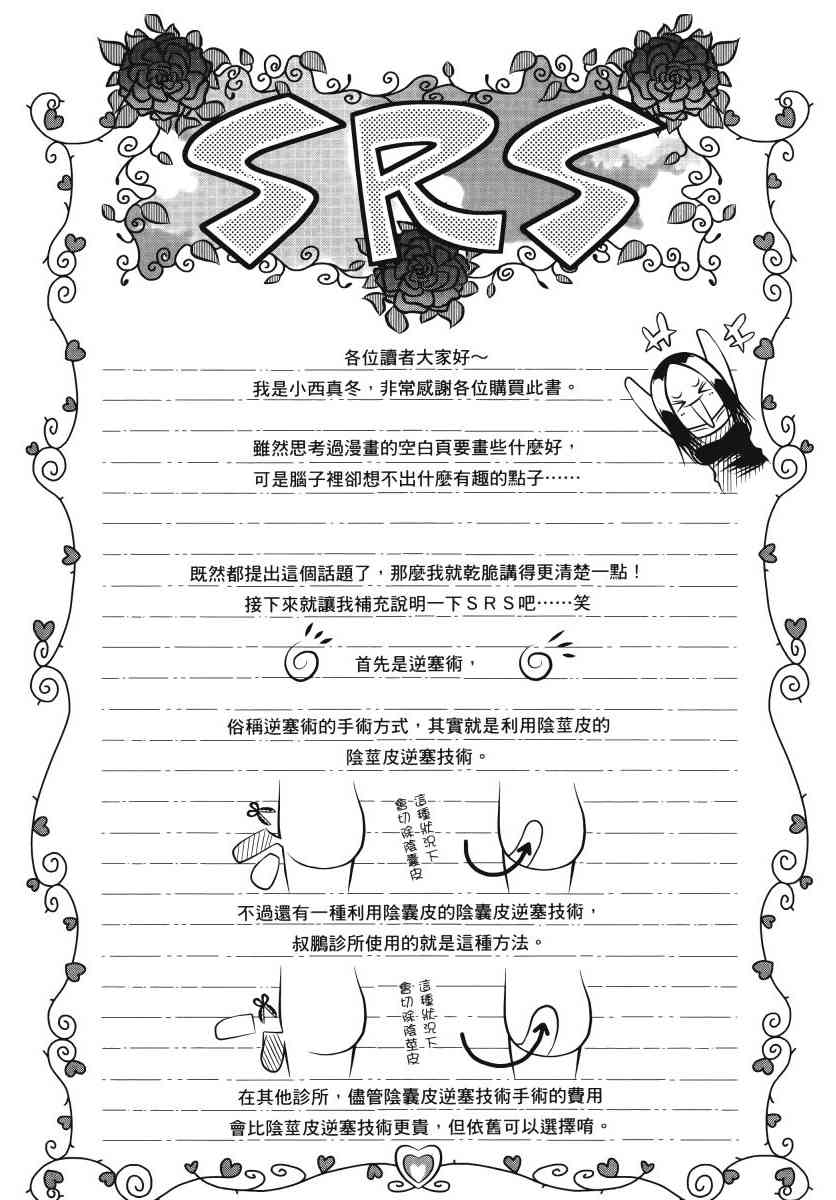 SRS
各位讀者大家好～
我是小西真冬，非常感謝各位購買此書。
雖然思考過漫畫的空白頁要畫些什麼好，
可是腦子裡卻想不出什麼有趣的點子……
既然都提出這個話題了，那麼我就乾脆講得更清楚一點！
接下來就讓我補充說明一下ＳＲＳ吧……笑
首先是逆塞術，
俗稱逆塞術的手術方式，其實就是利用陰莖皮的
陰莖皮逆塞技術。
這種狀況下
會切除陰囊皮
不過還有一種利用陰囊皮的陰囊皮逆塞技術，
叔鵬診所使用的就是這種方法。
這種狀況下
會切除陰莖皮
在其他診所，儘管陰囊皮逆塞技術手術的費用
會比陰莖皮逆塞技術更貴，但依舊可以選擇唷。